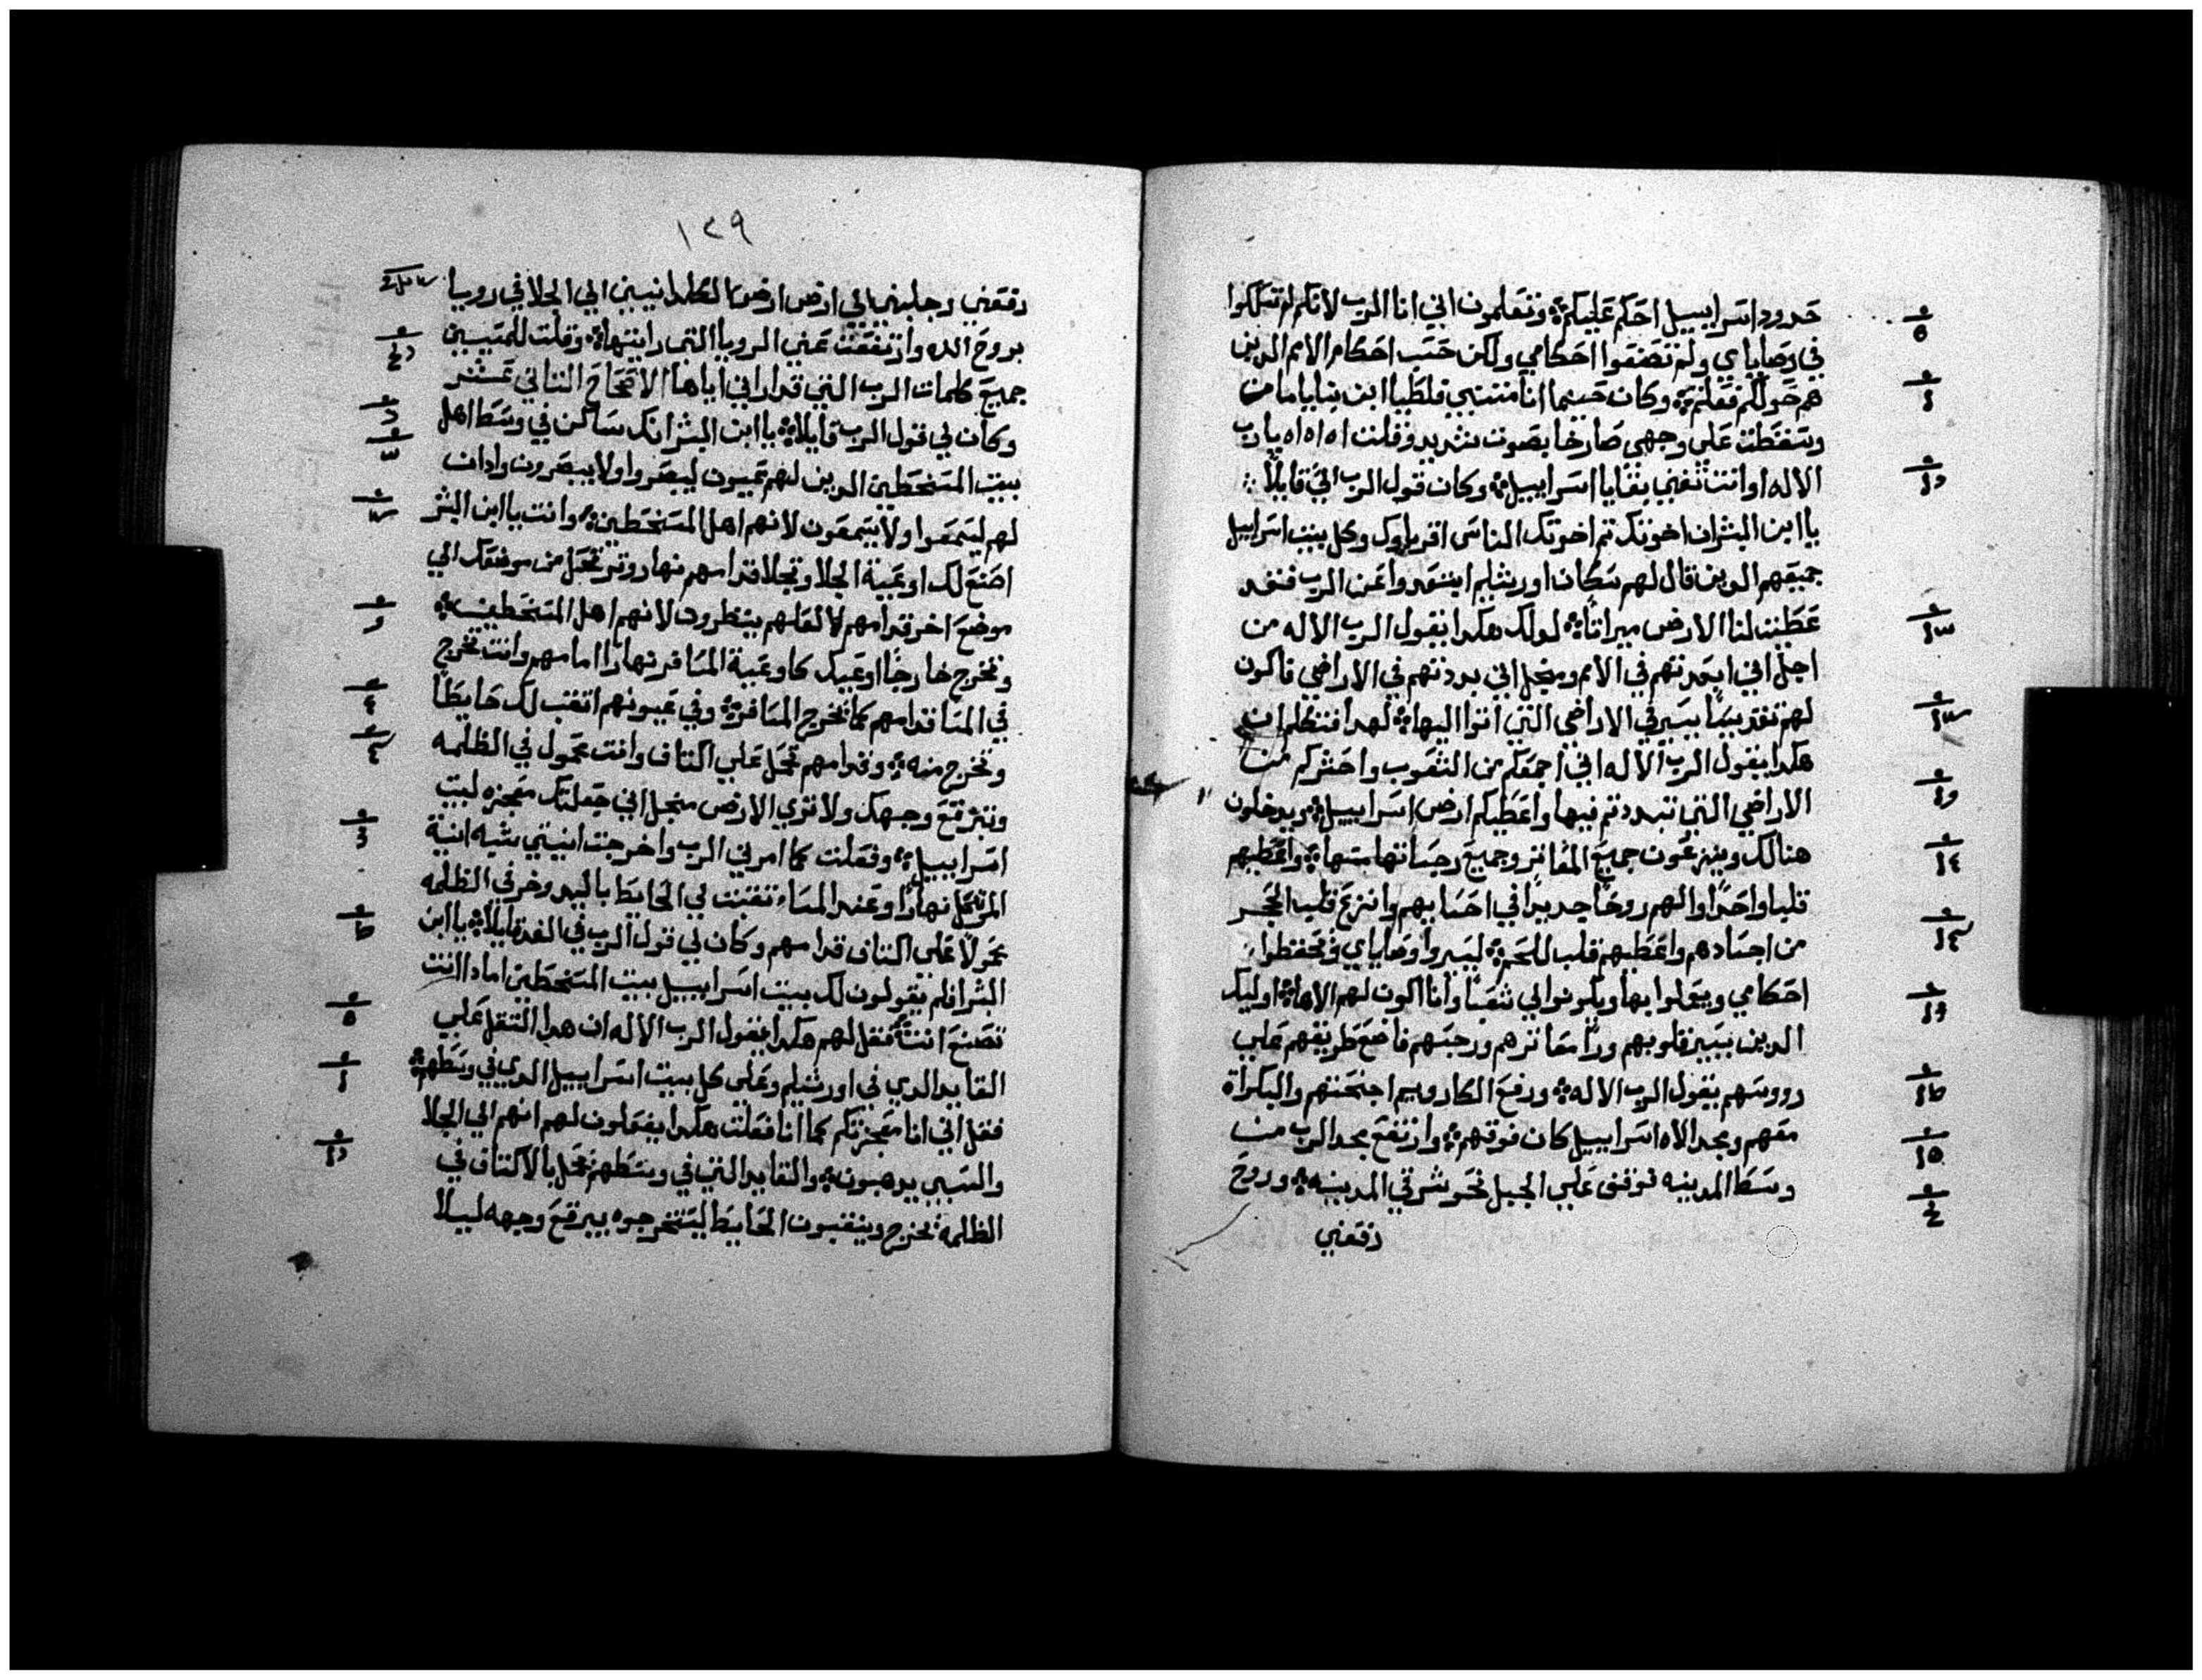 حدود اسراييل احكم عليكم وتعلمون اني انا الرب لانكم لم تسلكوا
في وصاياي ولم تصنعوا احكامي ولكن حسب احكام الامم الدين
هم حولكم فعلتم وكان حينما انا متنبي فلطيا ابن بنايا مات
وسقطت علي وجهي صارخا بصوت شديد وقلت اه اه اه يارب
الاله اوانت تفني بقايا اسراييل وكان قول الرب الي قايلا
يا ابن البشر ان اخوتك تم اخوتك الناس اقرباوك وكل بيت اسراييل
جميعهم الدين قال لهم سكان اورشليم ابتعدوا عن الرب فنقد
عطيت لنا الارض ميراتا لدلك هكدا يقول الرب الاله من
اجل اني ابعدتهم في الامم ومنجل اني بددتهم في الاراضي فاكون
لهم تقديسا يسير في الاراضي التي اتوا اليها لهدا فتكلم ان
هكدا يقول الرب الاله اني اجمعكم من الشعوب واحشركم من
الاراضي التي تبددتم فيها واعطيكم ارض اسراييل ويدخلون
هنالك وينزعون جميع المعاتر وجميع رجساتها منها واعطيهم
قلبا واحدا والهم روحا جديدا في احشايهم وانزع قلب الحجر
من اجسادهم واعطيهم قلب لحم ليسيروا وصاياي وتحفظوا
احكامي ويعملوا بها ويكونوا لي شعبا وانا اكون لهم الاها اوليك
الدين يسير قلوبهم ورا معاترهم ورجسهم فاضع طريقهم علي
رووسهم يقول الرب الاله ورفع الكاروبيم اجنحتهم والبكراة
معهم ومجد الاه اسراييل كان فوقهم وارتفع مجد الرب من
وسط المدينه فوقف علي الجبل نحو شرقي المدينه وروح
رفعني
١٢٩
رفعني وجلبني الي ارض ارض الكلدانيين الي الجلا في رويا
بروح الله وارتفعت عني الرويا التي رايتها وقلت للمسبيين
جميع كلمات الرب التي قد اراني اياها الاصحاح التاني عشر
وكان لي قول الرب قايلا يا ابن البشر انك ساكن في وسط اهل
بيت المسخطين الدين لهم عيون ليبصروا ولا يبصرون وادان
لهم ليسمعوا ولا يسمعون لانهم اهل المسخطين وانت يا ابن البشر
اصنع لك اوعية الجلا وتجلا قدامهم نهار وترتحل من موضعك الي
موضع اخر قدامهم لعلهم ينظرون لانهم اهل المسخطين
وتخرج خارجا اوعيك كاوعية المسافر نهارا امامهم وانت تخرج
في المسا قدامهم كما تخرج المسافر وفي عيونهم اتقب لك حايطا
وتخرج منه وقدامهم تحمل علي اكتاف وانت محمول في الظلمه
وتبرقع وجهك ولا تري الارض منجل اني جعلتك معجزه لبيت
اسراييل وفعلت كما امرني الرب واخرجت انيتي شبه انية
المرتحل نهارا وعند المساء تقبت لي الحايط باليد وخر في الظلمه
محمولا علي اكتاف قدامهم وكان لي قول الرب في الغد قايلا يا ابن
البشر افلم يقولون لك بيت اسراييل بيت المسخطين امادا انت
تصنع انت فقل لهم هكدا يقول الرب الاله ان هدا التقل علي
القايد الدي في اورشليم وعلي كل بيت اسراييل الدي في وسطهم
فقل اني انا معجزتكم كما انا فعلت هكدا يفعلون لهم انهم الي الجلا
والسبي يدهبون والقايد التي في وسطهم يحمل بالاكتاف في
الظلمه يخرج وينقبون الحايط ليستخرجوه يبرقع وجهه ليلا